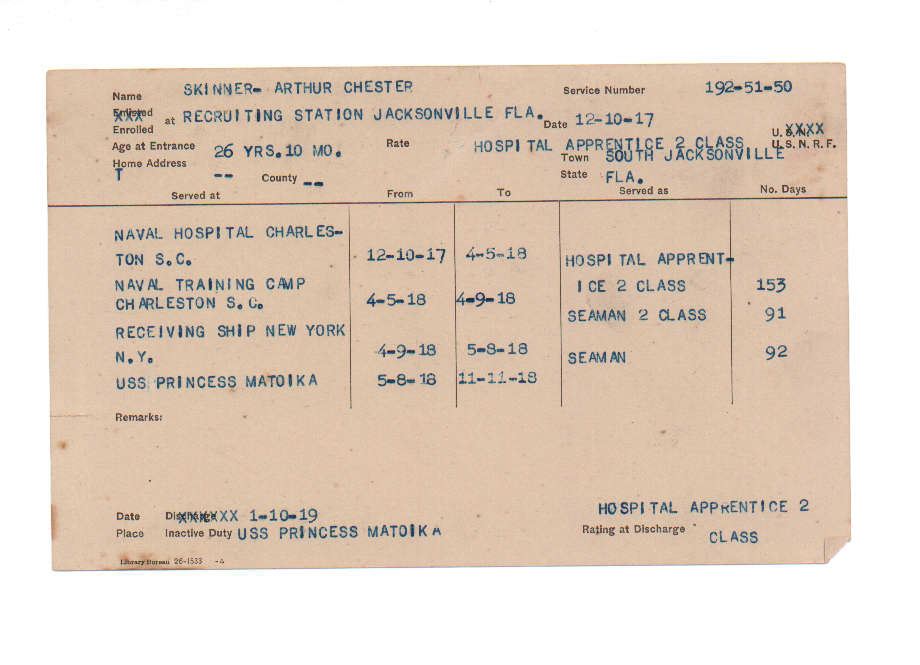 Name SKINNER- ARTHUR CHESTER Service Number 192-51-50
Enlisted XXX
Enrolled at RECRUITING STATION JACKSONVILLE FLA. Date 12-10-17 U.S.N. XXXX
Age at Entrance 26 YRS.10 MO. Rate HOSPITAL APPRENTICE 2 CLASS U.S.N.R.F.
Home Address Town SOUTH JACKSONVILLE
T -- County -- State FLA.
Served at From To Served as No. Days
NAVAL HOSPITAL CHARLES-
TON S.C. 12-10-17 4-5-18 HOSPITAL APPRENT-
NAVAL TRAINING CAMP ICE 2 CLASS 153
CHARLESTON S.C. 4-5-18 4-9-18 SEAMAN 2 CLASS 91
RECEIVING SHIP NEW YORK
N.Y. 4-9-18 5-8-18 SEAMAN 92
USS PRINCESS MATOIKA 5-8-18 11-11-18
Remarks:
Date Discharge XXXXXX 1-10-19 HOSPITAL APPRENTICE 2
Place Inactive Duty USS PRINCESS MATOIKA Rating at Discharge CLASS
Library Bureau 26-1533 -A